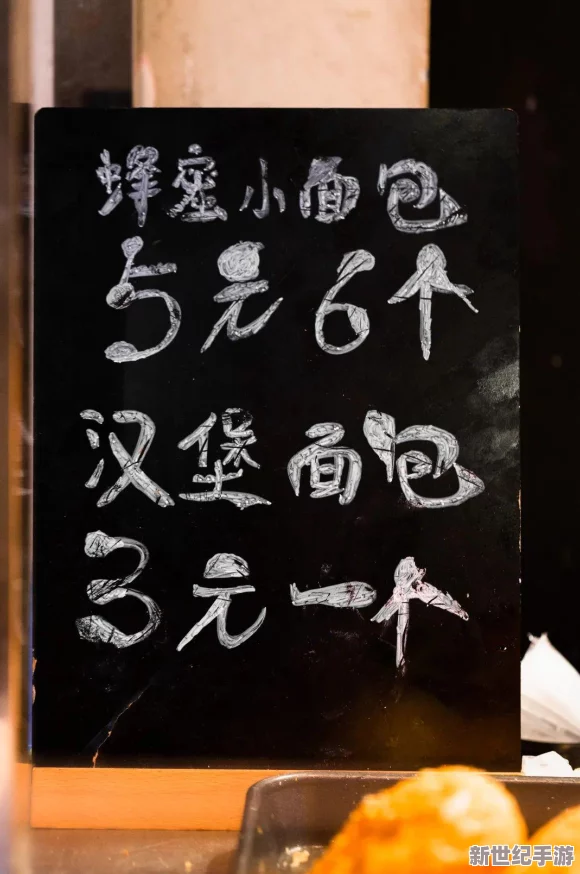 蜂蜜小面包
5元6个
汉堡面包
3元一个
新世纪手游